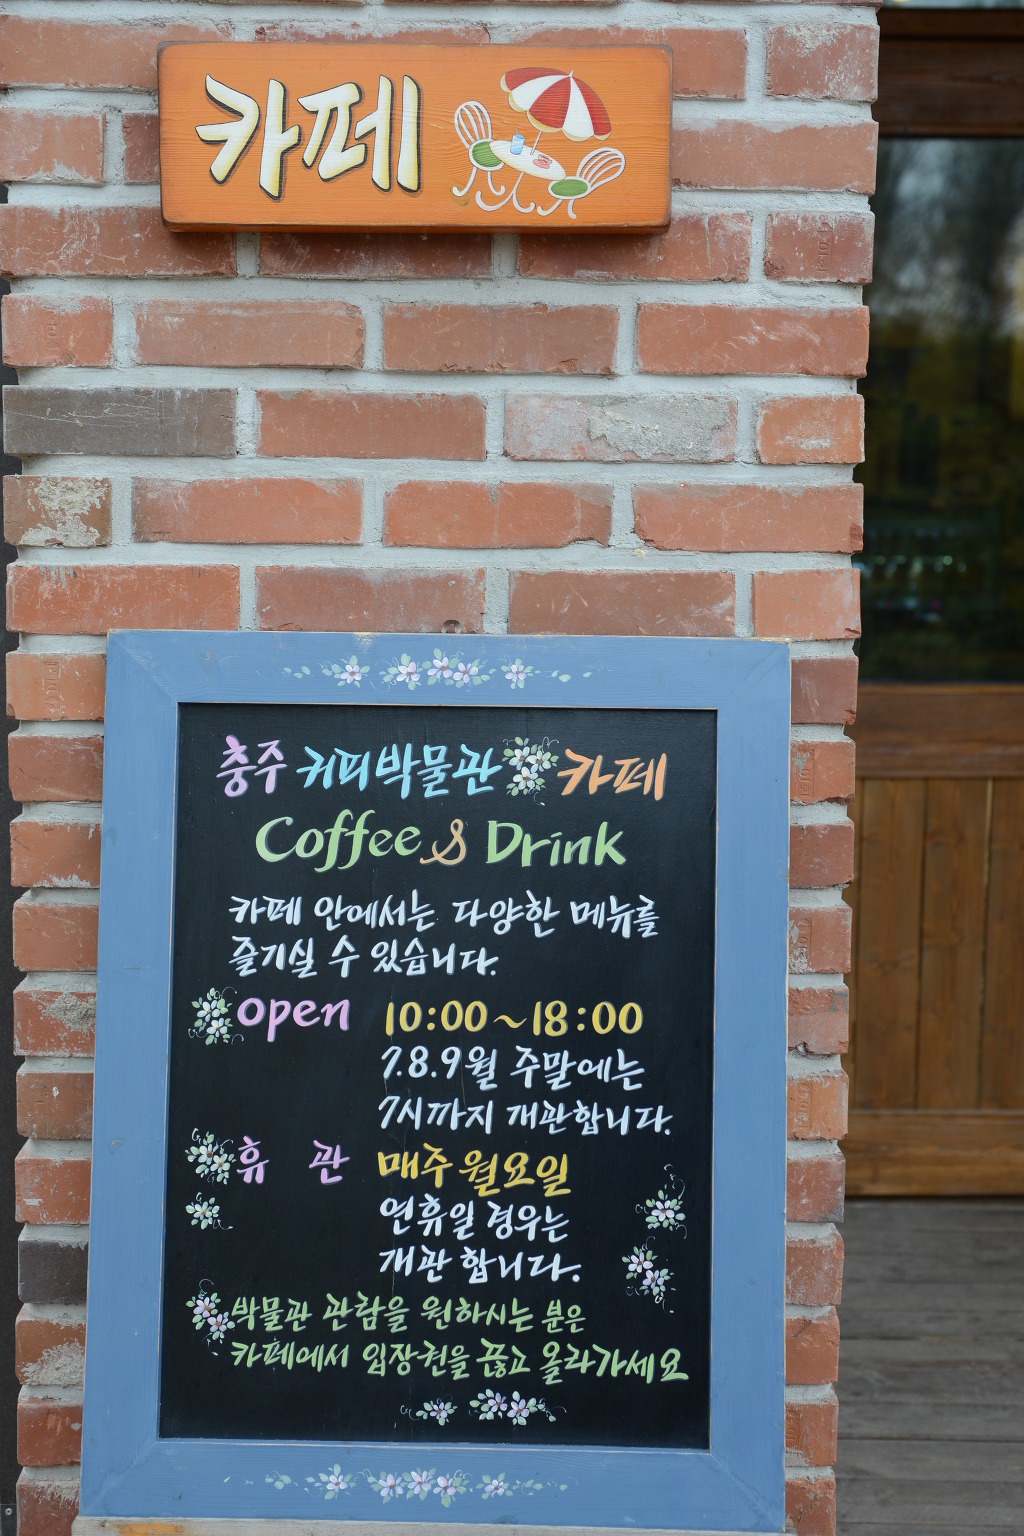 카페
충주 커피박물관 카페
Coffee & Drink
카페 안에서는 다양한 메뉴를
즐기실 수 있습니다.
open 10:00~18:00
7.8.9월 주말에는
7시까지 개관합니다.
휴 관 매주 월요일
연휴일 경우는
개관 합니다.
박물관 관람을 원하시는 분은
카페에서 입장권을 끊고 올라가세요